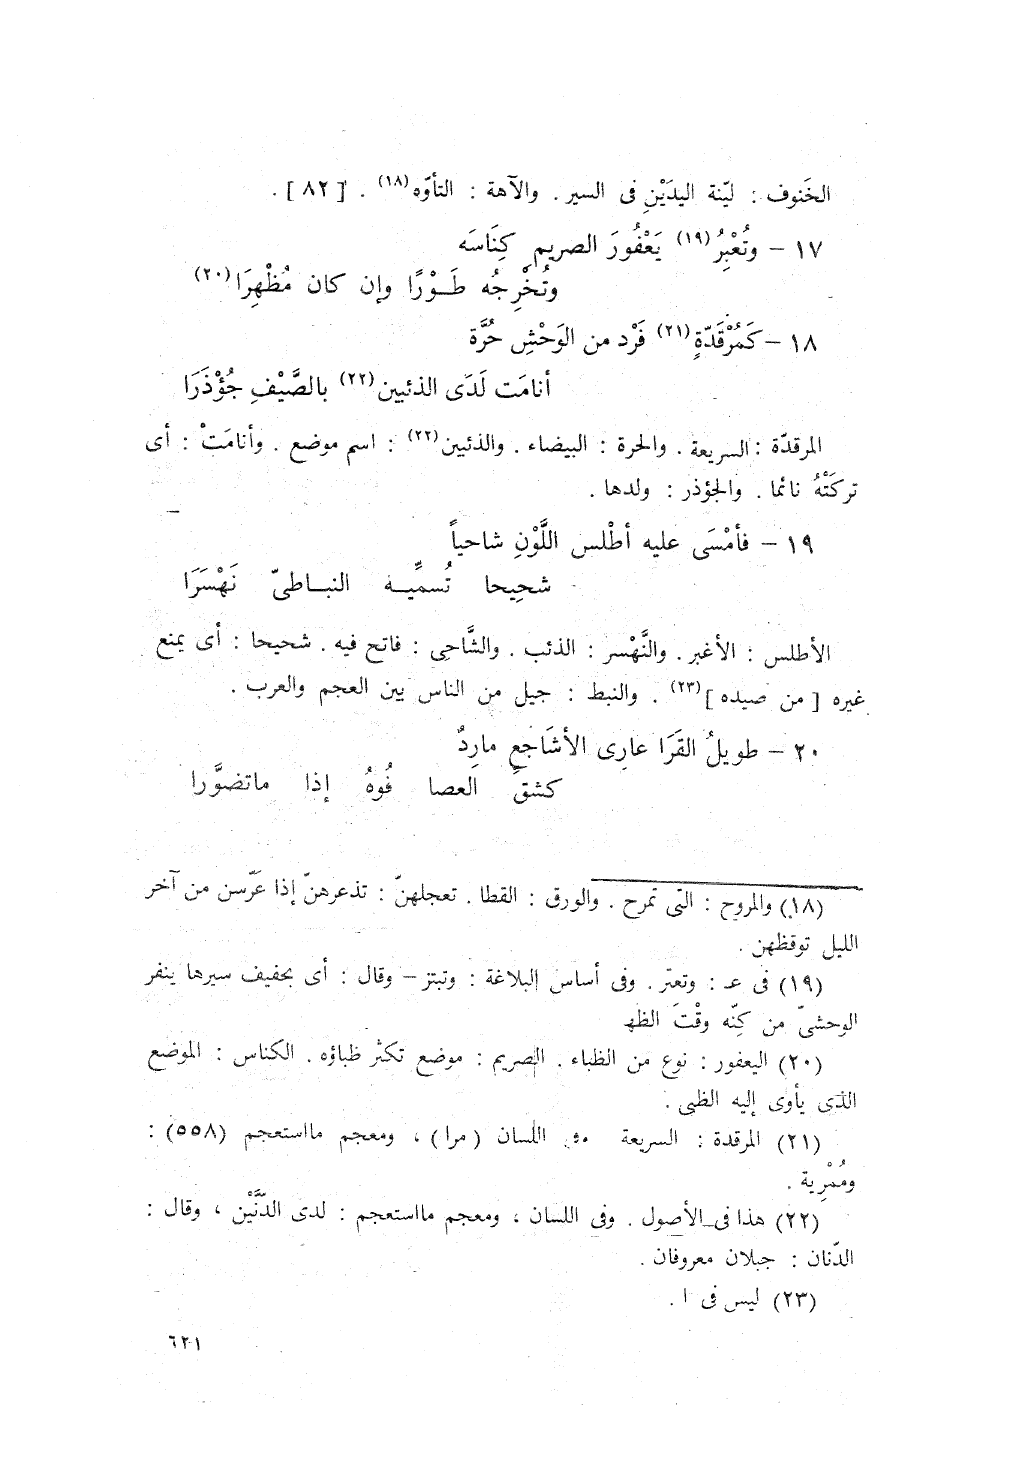 الخَنوف : ليّنة اليدَيْنِ فى السير . والآهة : التأوّه(١٨) . [ ٨٢ ] .
١٧ – وتُعْبِرُ(١٩) يَعْفُورَ الصريمِ كِنَاسَه
وتُخْرِجُه طَــوْرًا وإن كان مُظْهِرَا(٢٠)
١٨ –كَمُرْقَدّةٍ(٢١) فَرْد من الوَحْشِ حُرَّة
أنامَت لَدَى الذئبين(٢٢) بالصَّيْفِ جُؤْذَرَا
المرقدّة : السريعة . والحرة : البيضاء . والذئبين(٢٢) : اسم موضع . وأنامَتْ : أى
تركَتْهُ نائما . والجؤذر : ولدها .
١٩ – فأمْسَى عليه أطْلس اللَّوْنِ شاحياً
شحِيحا تُسمِّيــه النبــاطىّ نَهْسَرَا
الأطلس : الأغبر . والنَّهْسر : الذئب . والشَّاحِى : فاتح فيه . شحيحا : أى يمنع
غيره [ من صيده ](٢٣) . والنبط : جيل من الناس بين العجم والعرب .
٢٠ – طويلُ القَرَا عارِى الأشَاجعِ مارِدٌ
كشقِّ العصا فُوهُ إذا ماتضوَّرا
(١٨) والمروح : التى تمرح . والورق : القطا . تعجلهنّ : تذعرهنّ إذا عَرّسن من آخر
الليل توقظهن .
(١٩) فى عـ : وتعتر . وفى أساس البلاغة : وتبتز – وقال : أى بحفيف سيرها ينفر
الوحشىّ من كِنّه وقْتَ الظهـ
(٢٠) اليعفور : نوع من الظباء . الصريم : موضع تكثر ظباؤه . الكناس : الموضع
الذى يأوى إليه الظبى .
(٢١) المرقدة : السريعة وفى اللسان ( مرا ) ، ومعجم مااستعجم (٥٥٨) :
ومُمْرِية .
(٢٢) هذا فى الأصول . وفى اللسان ، ومعجم مااستعجم : لدى الدّنَّيْن ، وقال :
الدّنان : جبلان معروفان .
(٢٣) ليس فى ا .
٦٢١